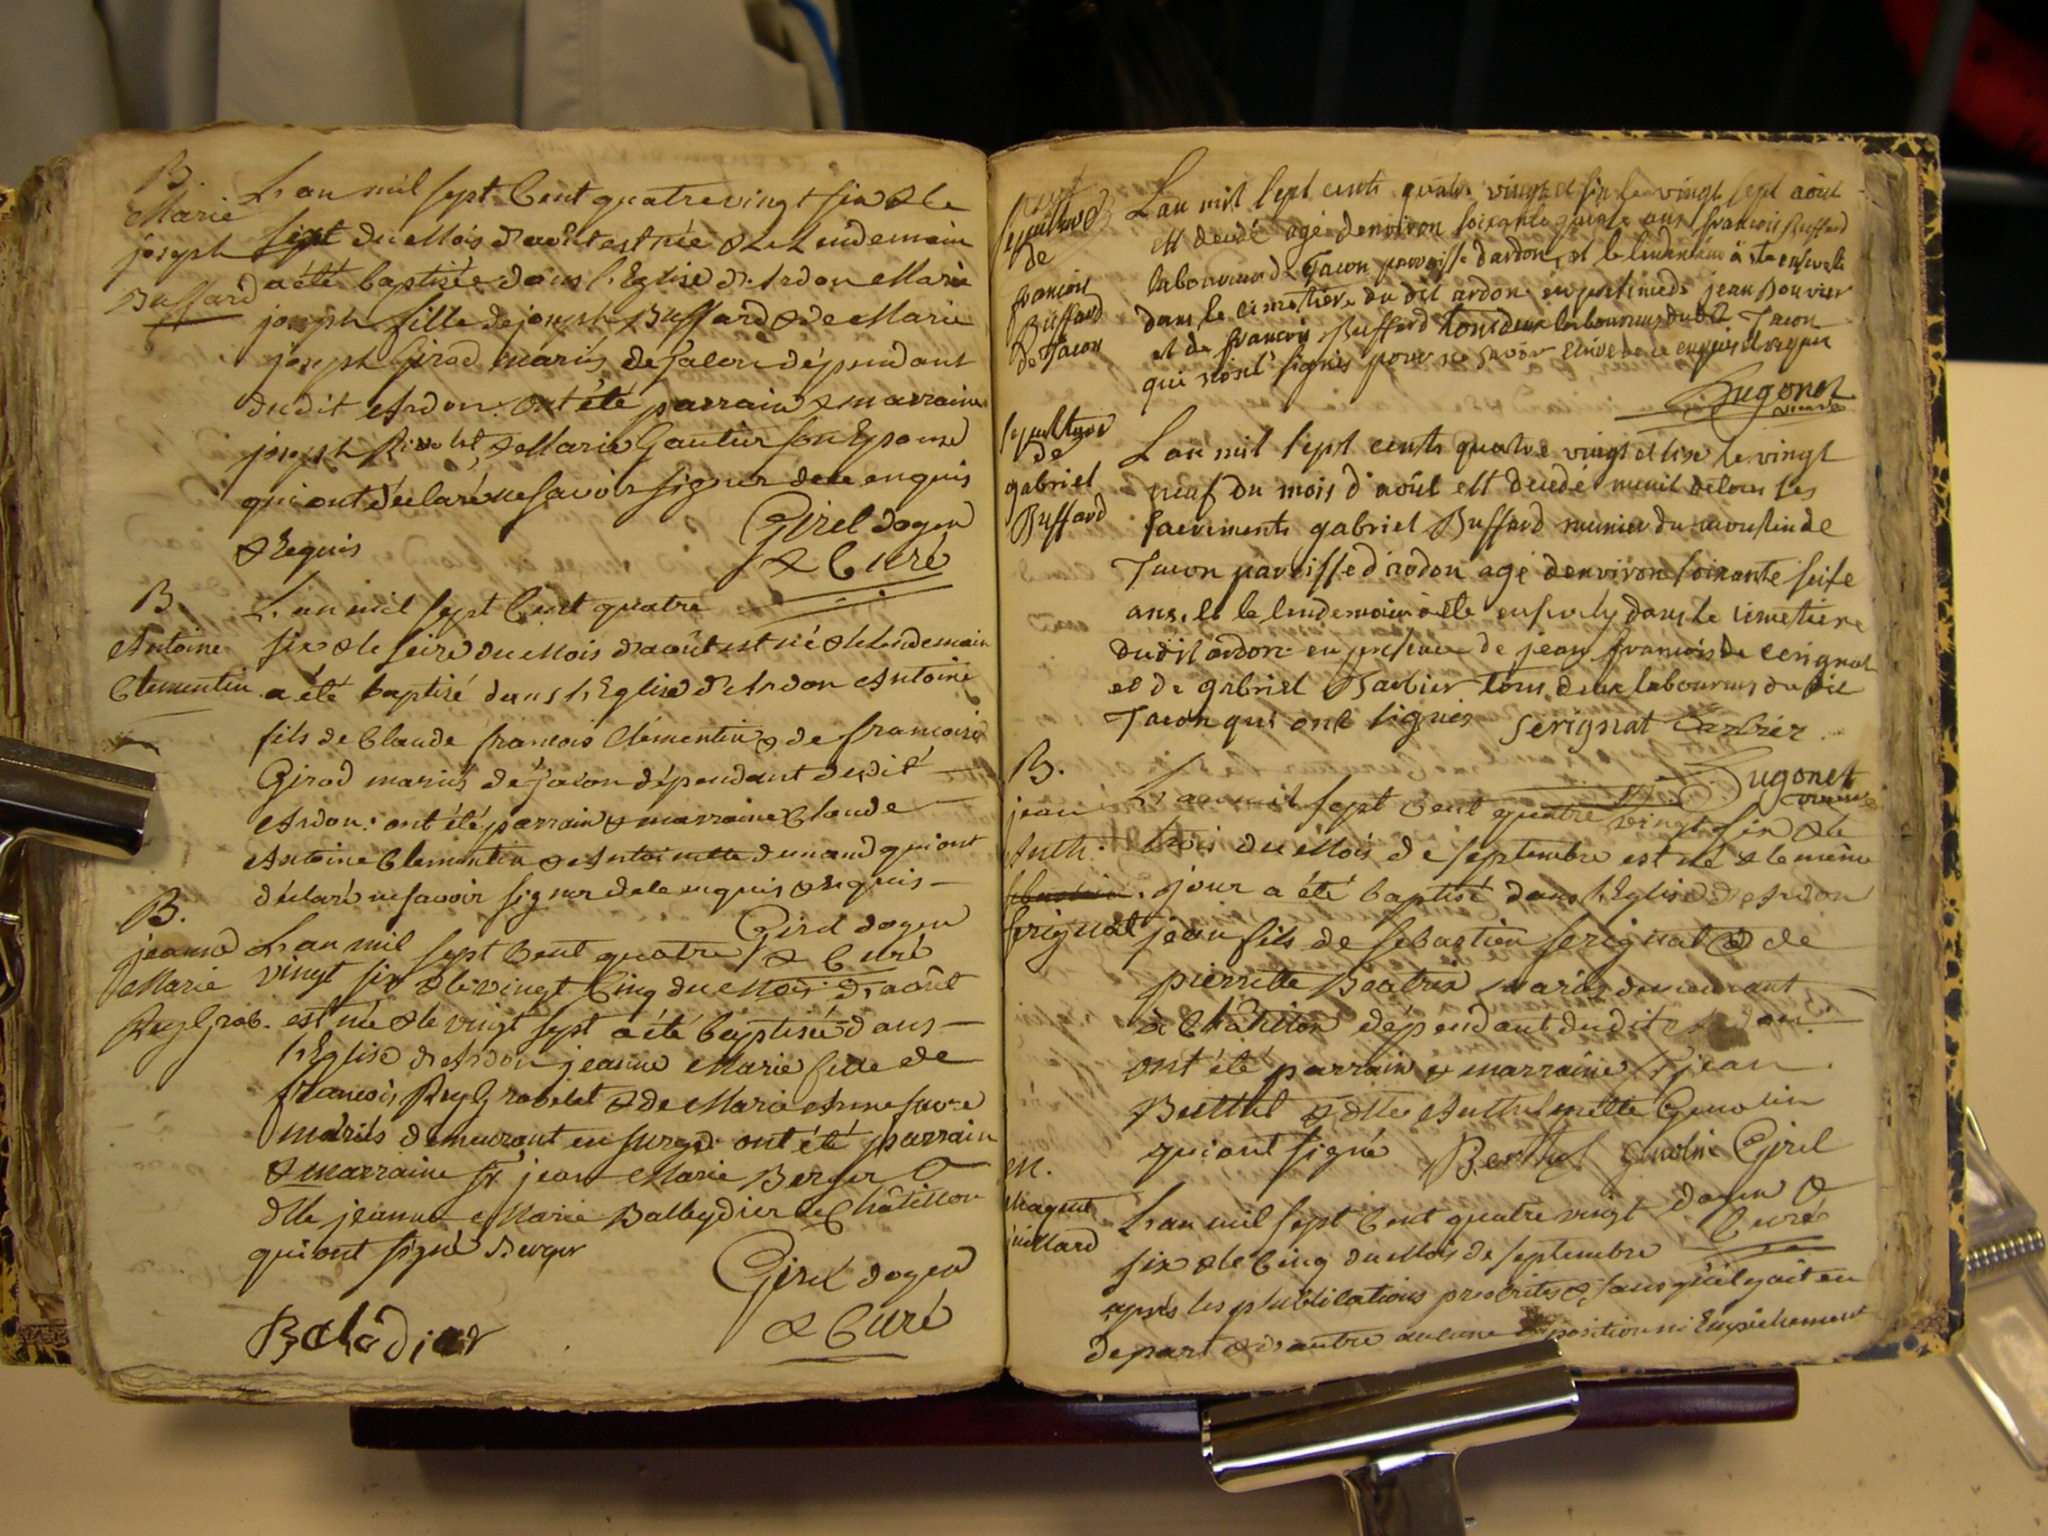 B.
Marie
joseph
Buffard
L'an mil sept Cent quatre vingt six & le
sept du Mois d'août est née & le Lendemain
a été baptisée dans l'Eglise d'Ardon Marie
joseph fille de joseph Buffard & de Marie
joseph Girod mariés de Tacon dépendant
dudit Ardon. ont été parrain & marraine
joseph & Marie Gautier son Epouse
qui ont déclaré ne savoir signer de ce enquis
& Requis
Girel doyen
& Curé
B
Antoine
Clementin
L'an mil sept Cent quatre
six & le seize du Mois d'août est né & le Lendemain
a été baptisé dans l'Eglise d'Ardon Antoine
fils de Claude françois Clémentin & de françoise
Girod mariés de Tacon dépendant dudit
Ardon. ont été parrain & marraine Claude
Antoine Clementin & Antoinette qui ont
déclaré ne savoir signer de ce enquis & Requis
Girel doyen
& Curé
B.
jeanne
Marie
Rey Grob.
L'an mil sept Cent quatre
vingt six & le vingt Cinq du Mois d'août
est née & le vingt sept a été baptisée dans
l'Eglise d'Ardon jeanne Marie fille de
françois Rey Grobelet & de Marie Anne favre
mariés demeurant en ont été parrain
& marraine Sr jean Marie Berger &
dlle jeanne Marie Balleydier de Châtillon
qui ont signé Berger
Girel doyen
& Curé
sepulture
de
françois
Buffard
de Tacon
L'an mil sept cents quatre vingt et six le vingt sept août
est decedé agé denviron soixante ans françois Buffard
laboureur de Tacon parroisse d'ardon, et le lendemain a ete enseveli
dans le cimetiere du dit ardon en presence de jean Bouvier
et de françois Buffard tous deux laboureurs dudit Tacon
qui n'ont signés pour ne savoir ecrire de ce enquis et requis
Hugonet
vicaire
sepulture
de
gabriel
Buffard
L'an mil sept cents quatre vingt et six le vingt
neuf du mois d'août est decedé muni de tous les
sacrements gabriel Buffard munier du moulin de
Tacon parroisse d'ardon agé denviron soixante seise
ans, et le lendemain a ete ensevely dans le cimetiere
dudit ardon en presence de jean françois de cerignat
et de gabriel Barbier tous deux laboureurs du dit
Tacon qui ont signés Serignat Barbier
Hugonet
vicaire
B.
jean
Anth.
Serignat
L'an mil sept Cent quatre vingt six & le
trois du Mois de septembre est né & le même
jour a été baptisé dans l'Eglise d'Ardon
jean fils de Sebastien Serignat & de
pierrette Beatrix mariés demeurant
à Châtillon dépendant dudit Ardon.
ont été parrain & marraine Sr jean
Berthet & dlle Anthelmette Genolin
qui ont signé Berthet Genolin Girel
doyen &
Curé
M.
L'an mil sept Cent quatre vingt
six & le Cinq du Mois de septembre
après les publications prescrites & sans qu'il y ait eu
de part & d'autre aucune opposition ni Empêchement